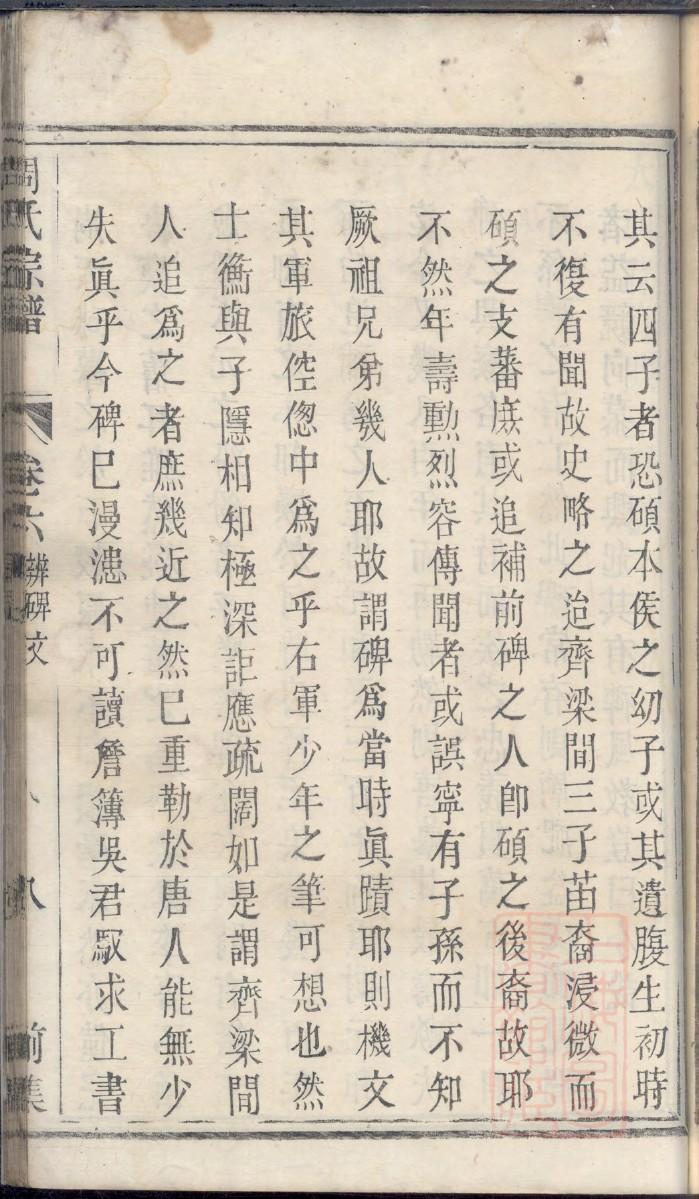 其云四子者恐碩本侯之幼子或其遺腹生初時
不復有聞故史略之迨齊梁間三子苗裔浸微而
碩之支蕃庶或追補前碑之人卽碩之後裔故耶
不然年壽勳烈容傳聞者或誤寧有子孫而不知
厥祖兄弟幾人耶故謂碑爲當時眞蹟耶則機文
其軍旅倥偬中爲之乎右軍少年之筆可想也然
士衡與子隱相知極深詎應疏闊如是謂齊梁間
人追爲之者庶幾近之然已重勒於唐人能無少
失眞乎今碑已漫漶不可讀詹簿吳君馭求工書
周氏宗譜 卷之六 辨碑文 八 前集